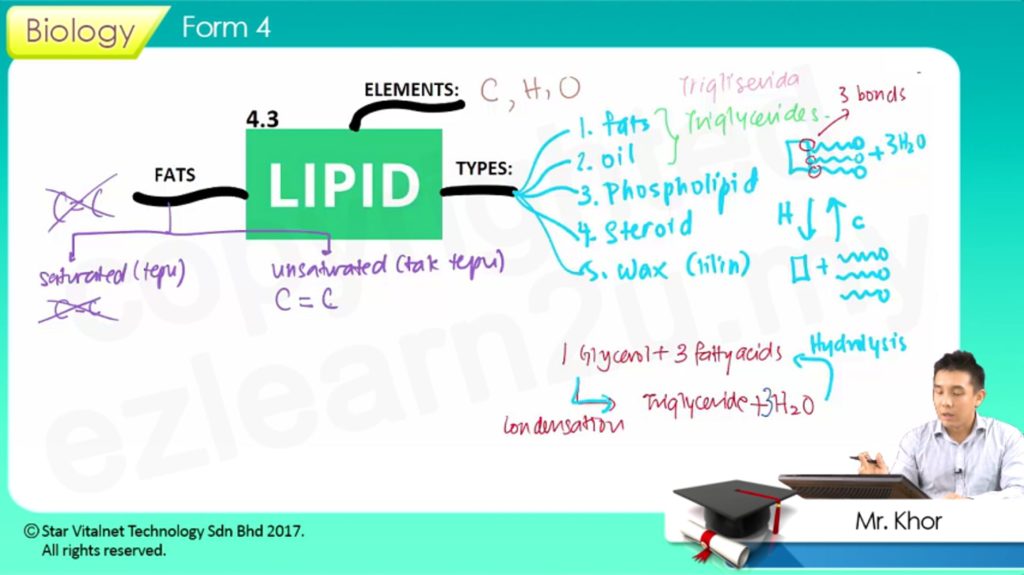 Biology
Form 4
ELEMENTS: C, H, O
4.3
LIPID
FATS
TYPES:
C=C
saturated (tepu)
C=C
unsaturated (tak tepu)
C = C
Trigliserida
1. fats
2. oil
Triglycerides.
3. Phospholipid
4. Steroid
5. Wax (lilin)
3 bonds
+ 3H2O
H
C
+
1 Glycerol + 3 fatty acids
Hydrolysis
Condensation
Triglyceride + 3H2O
copyrighted
ezlearn2u.my
Mr. Khor
© Star Vitalnet Technology Sdn Bhd 2017.
All rights reserved.